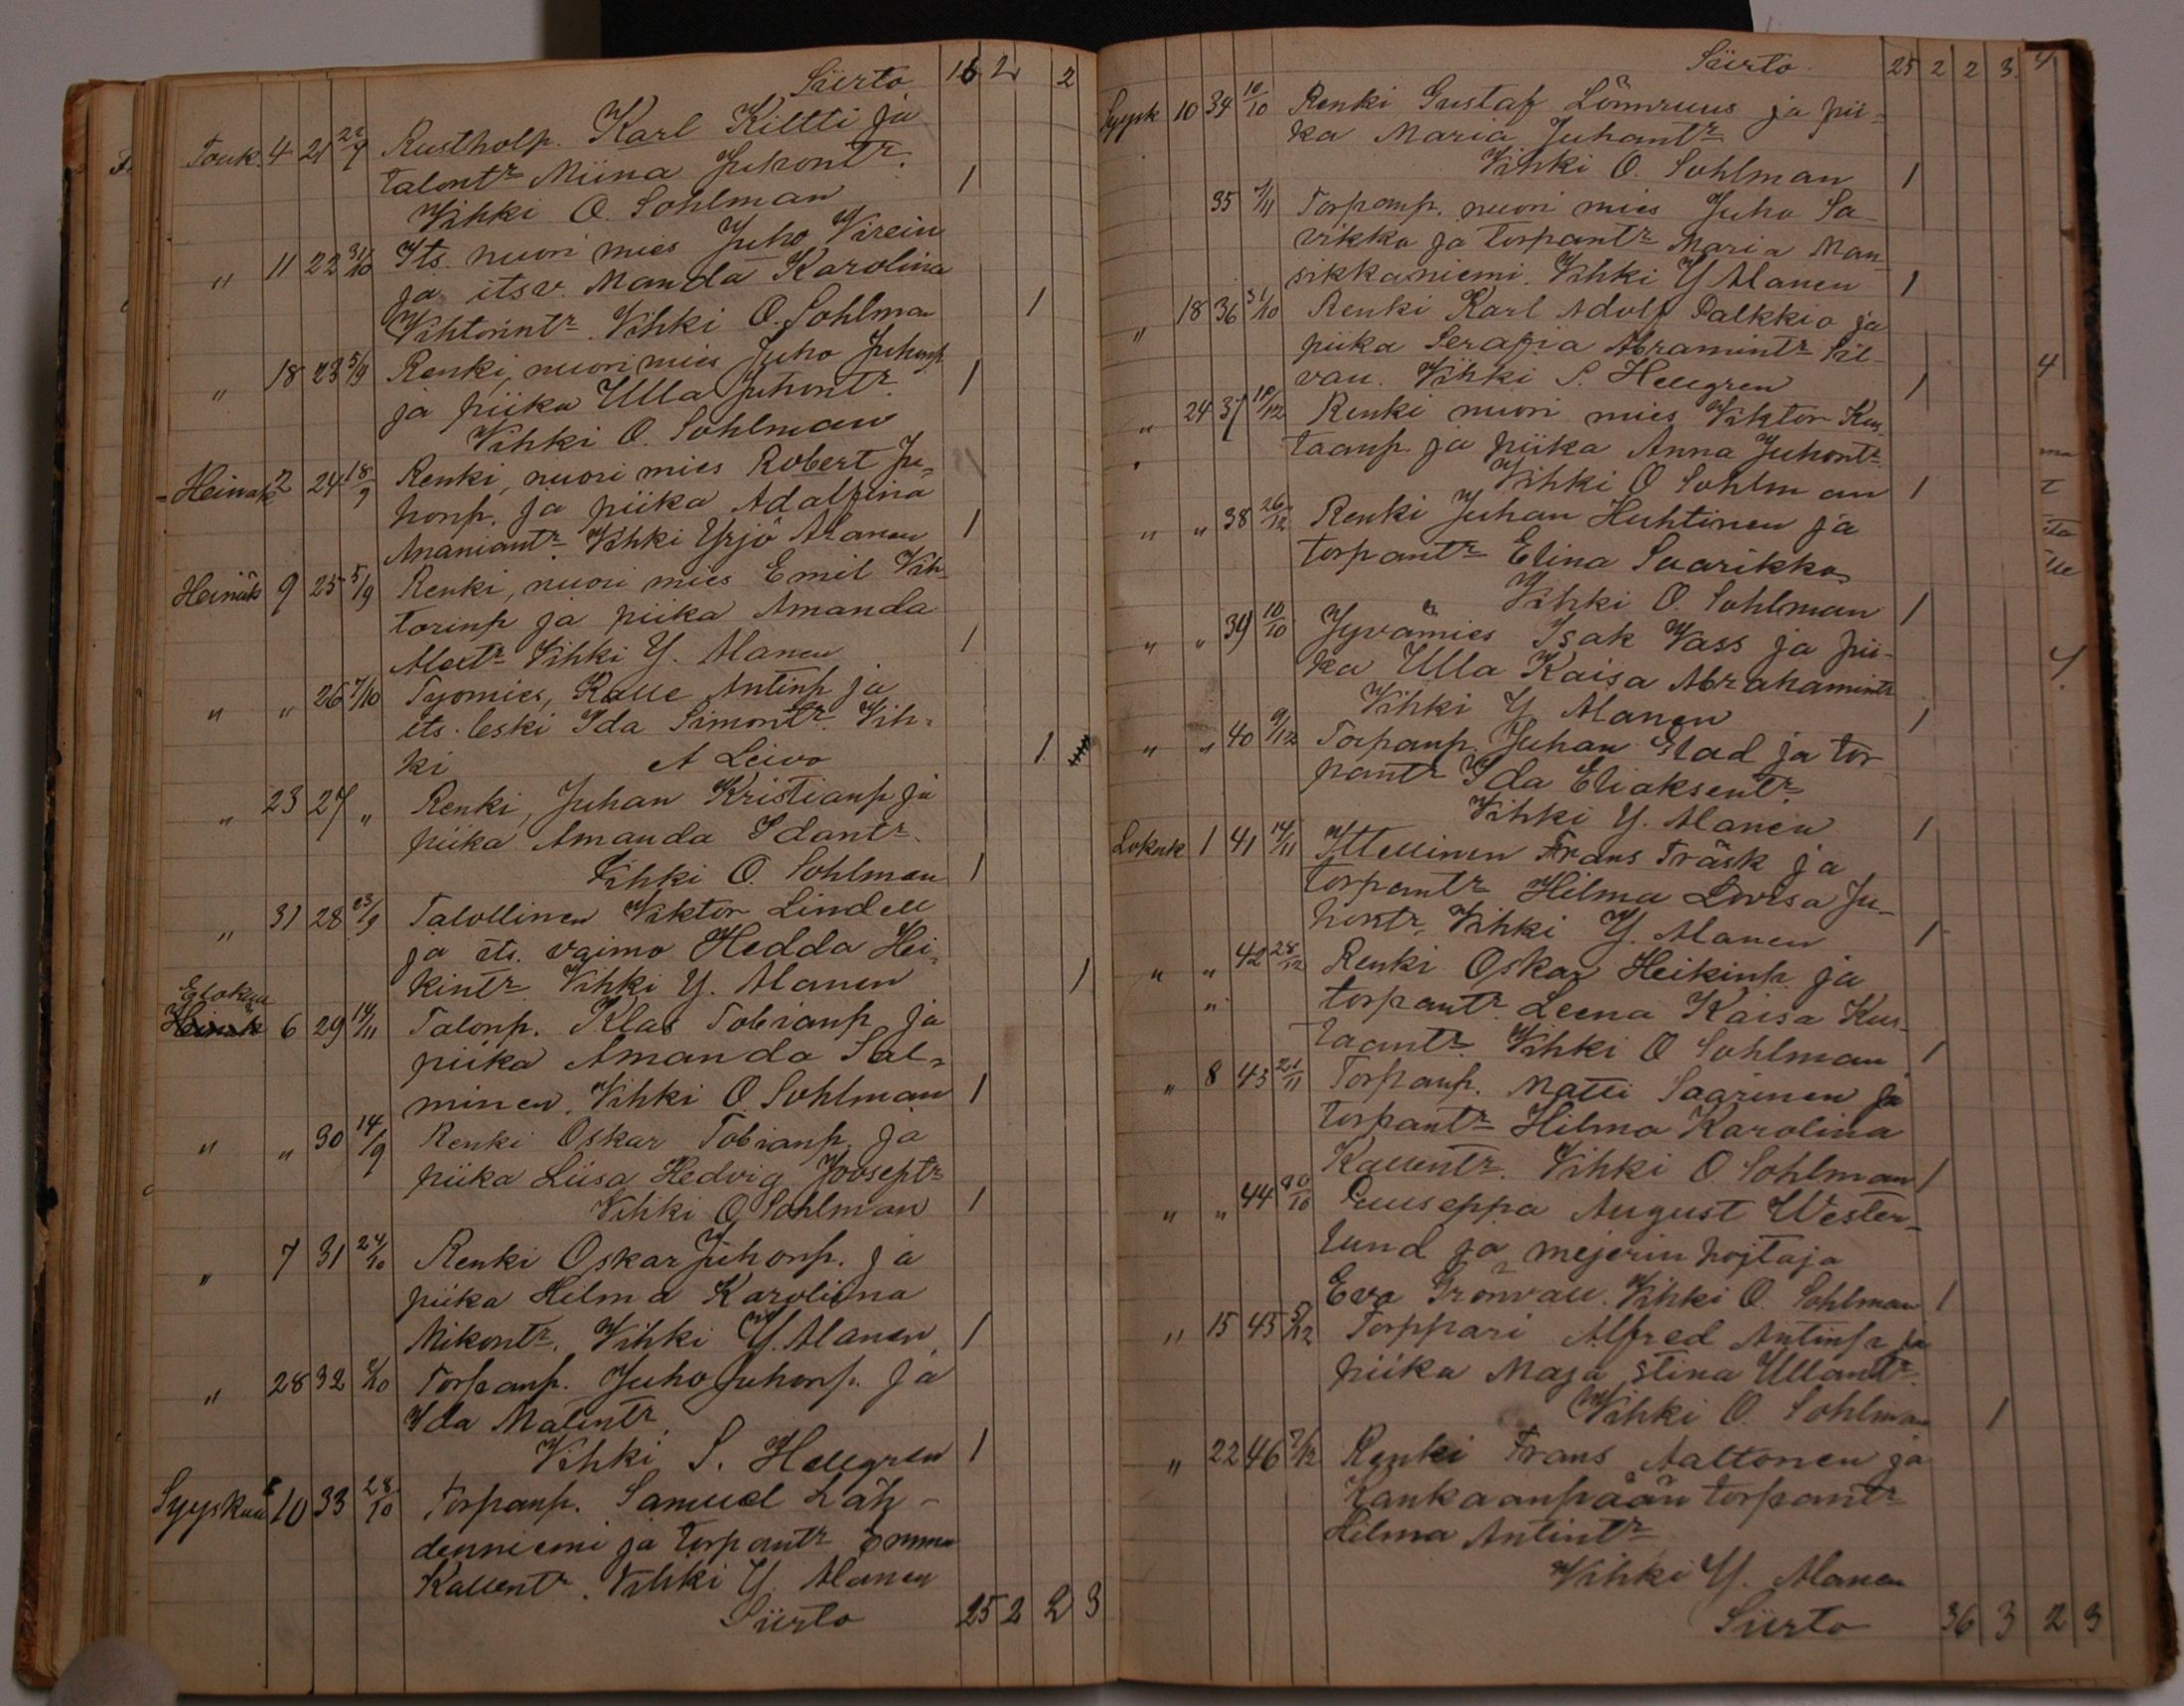 Siirto 16 2 2
Touk. 4 21 22/9 Rustholp. Karl Kiltti ja
talontr Miina Juhontr.
Vihki O. Sohlman 1
" 11 22 31/10 Its. nuori mies Juho Virein
ja itsv. Manda Karolina
Vihtorintr. Vihki O. Sohlman 1
" 18 23 5/9 Renki, nuori mies Juho Juhonp.
ja piika Ulla Juhontr. 1
Vihki O. Sohlman
Heinäk 2 24 18/9 Renki, nuori mies Robert Ju-
honp. ja piika Adalfina
Ananiantr. Vihki Yrjö Alanen 1
Heinäk 9 25 5/9 Renki, nuori mies Emil Vih-
torinp ja piika Amanda
Alextr Vihki Y. Alanen 1
" " 26 7/10 Työmies, Kalle Antinp ja
its. leski Ida Simontr. Vih-
ki A Leivo 1
" 23 27 " Renki, Juhan Kristianp ja
piika Amanda Idantr.
Vihki O. Sohlman 1
" 31 28 23/9 Talollinen Viktor Lindell
ja its. vaimo Hedda Hei-
kintr Vihki Y. Alanen 1
Elokuu
Heinäk 6 29 14/11 Talonp. Klas Tobianp ja
piika Amanda Sal-
minen. Vihki O. Sohlman 1
" " 30 14/9 Renki Oskar Tobianp. ja
piika Liisa Hedvig Jooseptr
Vihki O Sohlman 1
" 7 31 24/10 Renki Oskar Juhonp. ja
piika Hilma Karoliina
Mikontr. Vihki Y. Alanen 1
" 28 32 /10 Torpanp. Juho Juhonp. ja
Ida Matintr.
Vihki S. Hellgren 1
Syyskuu 10 33 28/10 Torpanp. Samuel Läh-
denniemi ja torpantr Emma
Kallentr. Vihki Y. Alanen
Siirto 25 2 2 3
Siirto 25 2 2 3 4
Syysk 10 34 10/10 Renki Gustaf Lönnruus ja pii-
ka Maria Juhantr
Vihki O. Sohlman 1
35 7/11 Torpanp. nuori mies Juho Sa-
vikko ja torpantr Maria Man-
sikkaniemi. Vihki Y Alanen 1
" 18 36 31/10 Renki Karl Adolf Palkkio ja
piika Serafia Abramintr Sil-
van. Vihki S. Hellgren 1 4
" 24 37 10/12 Renki nuori mies Viktor Kus-
taanp. ja piika Anna Juhontr. ma
Vihki O Sohlman 1
" " 38 26/12 Renki Juhan Huhtinen ja
torpantr Elina Saarikko
Vihki O. Sohlman 1
" " 39 10/10 Jyvämies Isak Vass ja pii-
ka Ulla Kaisa Abrahamintr 4
Vihki Y Alanen 1
" " 40 9/12 Torpanp. Juhan Glad ja tor
pantr Ida Eliaksentr.
Vihki Y. Alanen 1
Lokuk 1 41 14/11 Ittellinen Frans Träsk ja
torpantr Hilma Lovisa Ju-
hontr. Vihki Y. Alanen 1
" " 42 28/12 Renki Oskar Heikinp ja
" torpantr. Leena Kaisa Kus-
taantr. Vihki O Sohlman 1
" 8 43 21/11 Torpanp. Matti Saarinen ja
torpantr Hilma Karolina
Kallentr. Vihki O Sohlman 1
" " 44 30/10 Puuseppa August Wester-
lund ja mejerin hojtaja
Eva Grönvall. Vihki O. Sohlman 1
" 15 45 /12 Torppari Alfred Antinp ja
piika Maja Stina Ullantr.
Vihki O. Sohlman 1
" 22 46 7/12 Renki Frans Aaltonen ja
Kankaanpään torpantr
Hilma Antintr
Vihki Y. Alanen
Siirto 36 3 2 3